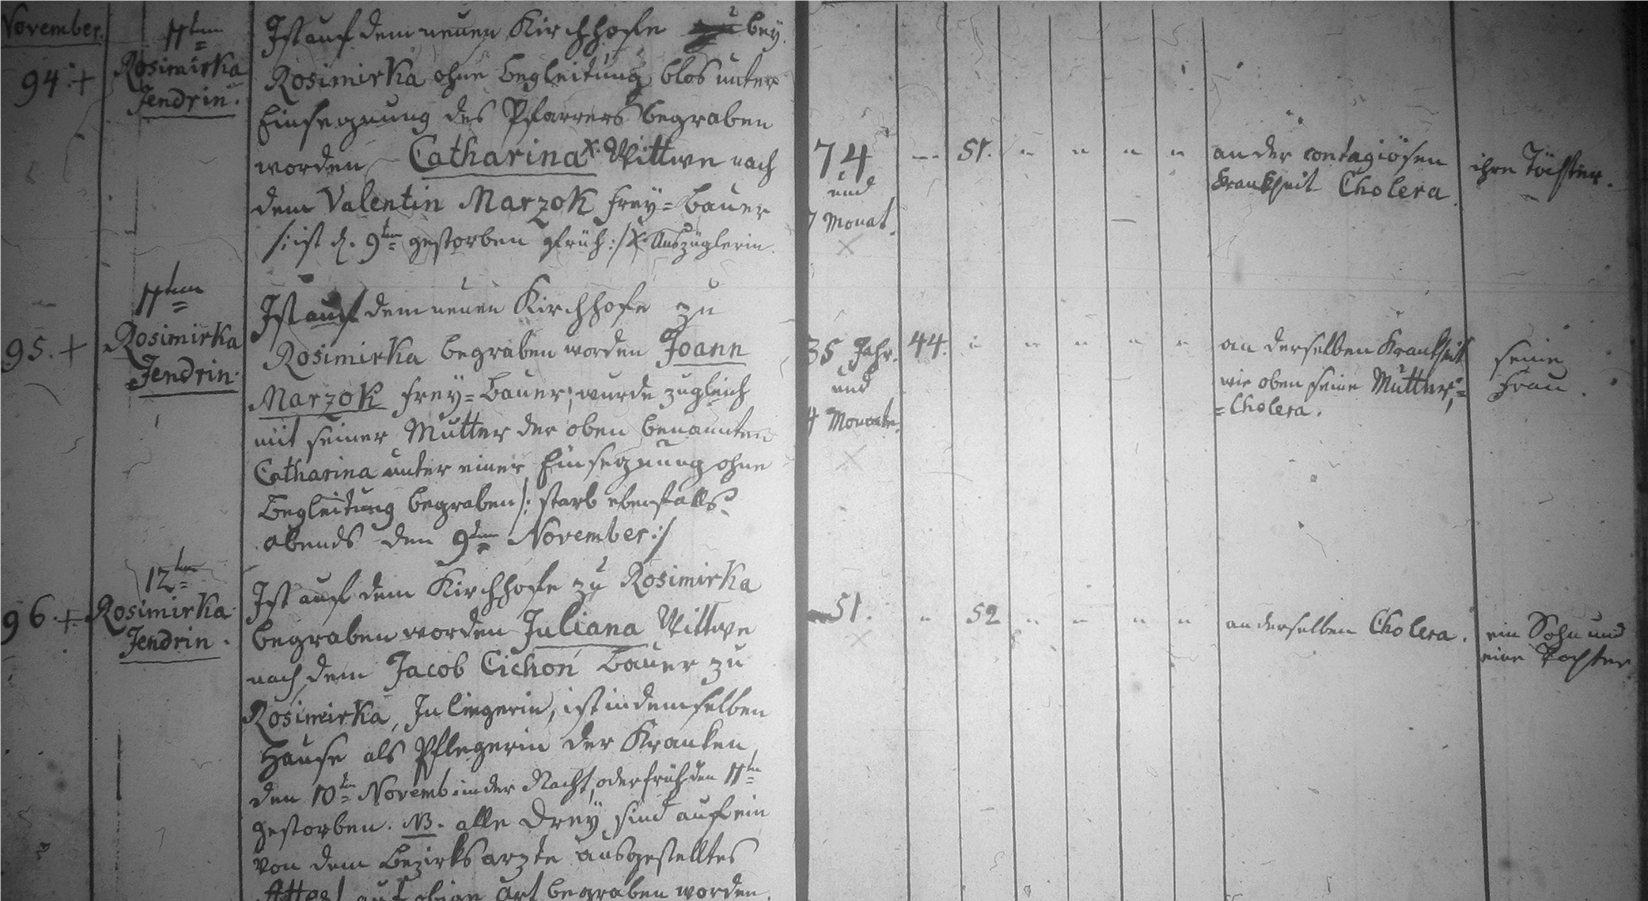 November.
94. + 11ten Rosimirka Jendrin.
Ist auf dem neuen Kirchhofe bey
Rosimirka ohne Begleitung blos unter
Einsegnung des Pfarrers begraben
worden Catharina x. Wittwe nach
dem Valentin Marzok frey=Bauer
/: ist d. 9ten gestorben früh :/ x. Auszüglerin.
74 und 7 Monat.
51.
an der contagiösen
Krankheit Cholera.
ihre Töchter.
95. + 11ten Rosimirka Jendrin.
Ist auf dem neuen Kirchhofe zu
Rosimirka begraben worden Joann
Marzok frey=Bauer, wurde zugleich
mit seiner Mutter der oben benannten
Catharina unter einer Einsegnung ohne
Begleitung begraben /: starb ebenfalls
abends den 9ten November :/
35 Jahr. und 4 Monate.
44.
an derselben Krankheit
wie oben seine Mutter,
=Cholera.
seine
Frau.
96. + 12ten Rosimirka Jendrin.
Ist auf dem Kirchhofe zu Rosimirka
begraben worden Juliana Wittwe
nach dem Jacob Cichon Bauer zu
Rosimirka, Inliegerin, ist in demselben
Hause als Pflegerin der Kranken,
den 10ten Novemb in der Nacht, oder früh den 11ten
gestorben. NB. alle Drey sind auf ein
von dem Bezirksarzte ausgestelltes
Attest auf obige Art begraben worden.
51.
52
an derselben Cholera.
ein Sohn und
eine Tochter